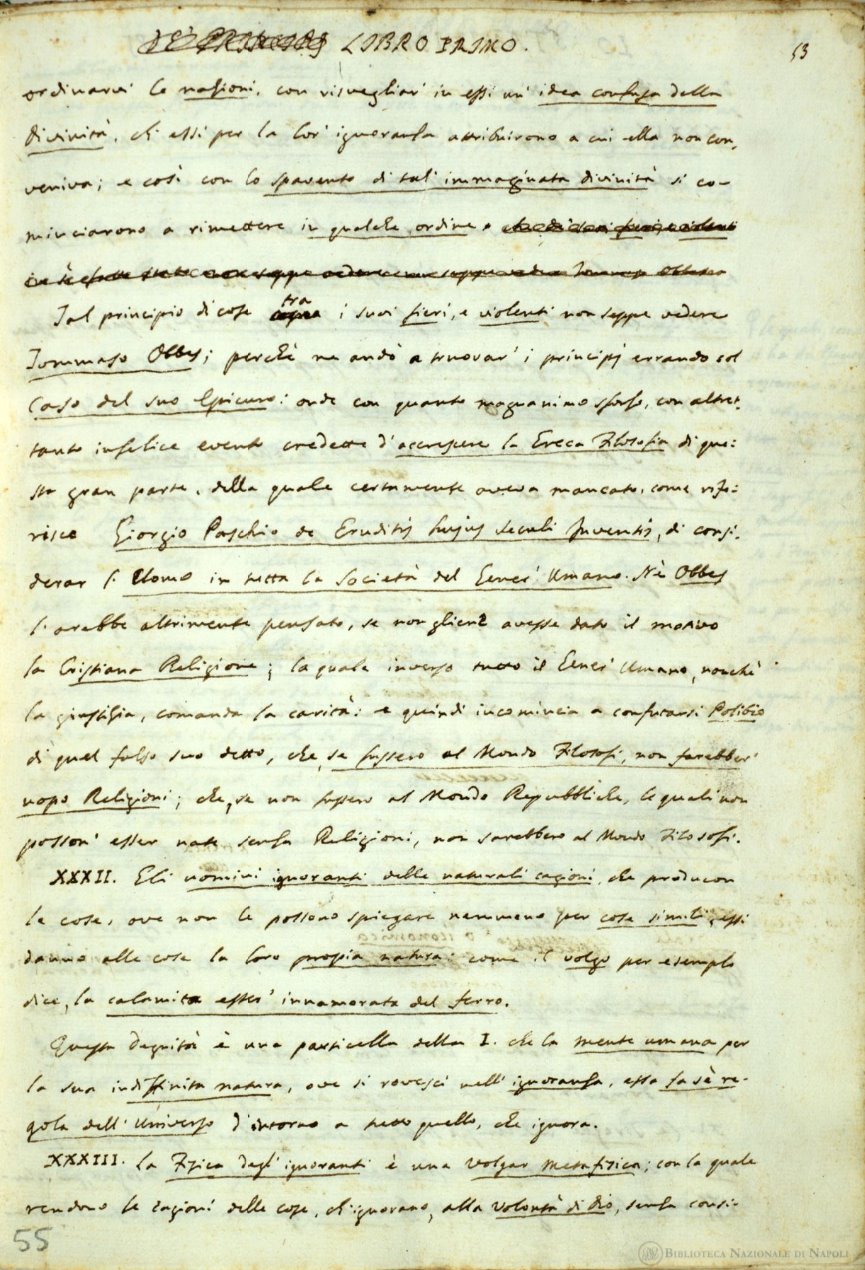 LIBRO PRIMO.
53
ordinarvi le nazioni, con risvegliar' in essi un' idea confusa della
Divinità, ch' essi per la lor' ignoranza attribuirono a cui ella non con-
veniva; e così con lo spavento di tal' immaginata divinità si co-
minciarono a rimettere in qualche ordine.
Tal principio di cose tra i suoi fieri, e violenti non seppe vedere
Tommaso Obbes; perchè ne andò a truovar' i principj errando col
Caso del suo Epicuro: onde con quanto magnanimo sforzo, con altret-
tanto infelice evento credette d'accrescere la Greca Filosofia di que-
sta gran parte, della quale certamente aveva mancato, come rife-
risce Giorgio Paschio de Eruditis hujus seculi Inventis, di consi-
derar l' Uomo in tutta la Società del Gener' Umano. Nè Obbes
l'arebbe altrimente pensato, se non gliene avesse dato il motivo
la Cristiana Religione; la quale inverso tutto il Gener' Umano, nonchè
la giustizia, comanda la carità: e quindi incomincia a confutarsi Polibio
di quel falso suo detto, che, se fussero al Mondo Filosofi, non farebber'
uopo Religioni; che, se non fussero al Mondo Repubbliche, le quali non
posson' esser nate senza Religioni, non sarebbero al Mondo Filosofi.
XXXII. Gli uomini ignoranti delle naturali cagioni, che producon
le cose, ove non le possono spiegare nemmeno per cose simili, essi
danno alle cose la loro propia natura: come il volgo per esemplo
dice, la calamita esser' innamorata del ferro.
Questa Degnità è una particella della I. che la mente umana per
la sua indiffinita natura, ove si rovesci nell' ignoranza, essa fa sè re-
gola dell' Universo d'intorno a tutto quello, che ignora.
XXXIII. La Fisica degl' ignoranti è una volgar Metafisica; con la quale
rendono le cagioni delle cose, ch'ignorano, alla volontà di Dio, senza consi-
55
BIBLIOTECA NAZIONALE DI NAPOLI